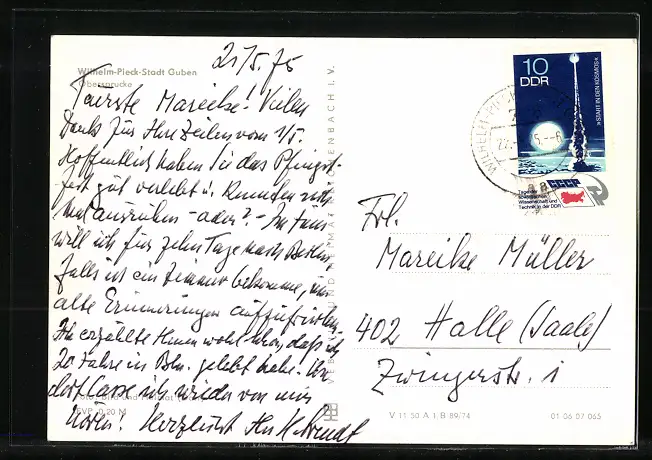 Wilhelm-Pieck-Stadt Guben
Obersprucke
21/5.75
Teuerste Mareike! Vielen
Dank für Ihre Zeilen vom 1/5.
Hoffentlich haben Sie das Pfingst-
fest gut verlebt u. konnten sich
ausruhen - oder? -
will ich für zehn Tage nach Berlin
falls ich ein Zimmer bekomme, um
alte Erinnerungen aufzufrischen.
Ich erzählte Ihnen wohl schon, daß ich
20 Jahre in Bln. gelebt habe. Von
dort lasse ich wieder von mir
hören! Herzlichst Ihr
EVP 0,20 M
10
DDR
START IN DEN KOSMOS
WILHELM-PIECK
CCCP
Tage der
sowjetischen
Wissenschaft und
Technik in der DDR
Frl.
Mareike Müller
402 Halle (Saale)
Zwingerstr. 1
V 11 50 A 1, B 89/74
01 06 07 065